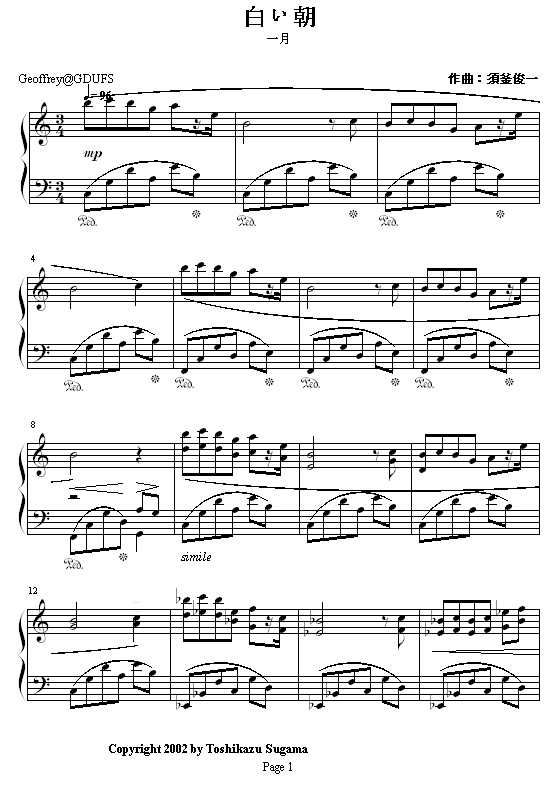 白い朝
一月
Geoffrey@GDUFS
作曲：須釜俊一
♩=96
mp
Ped. * Ped. * Ped. *
4
Ped. * Ped. * Ped. *
8
Ped. *
simile
12
Copyright 2002 by Toshikazu Sugama
Page 1